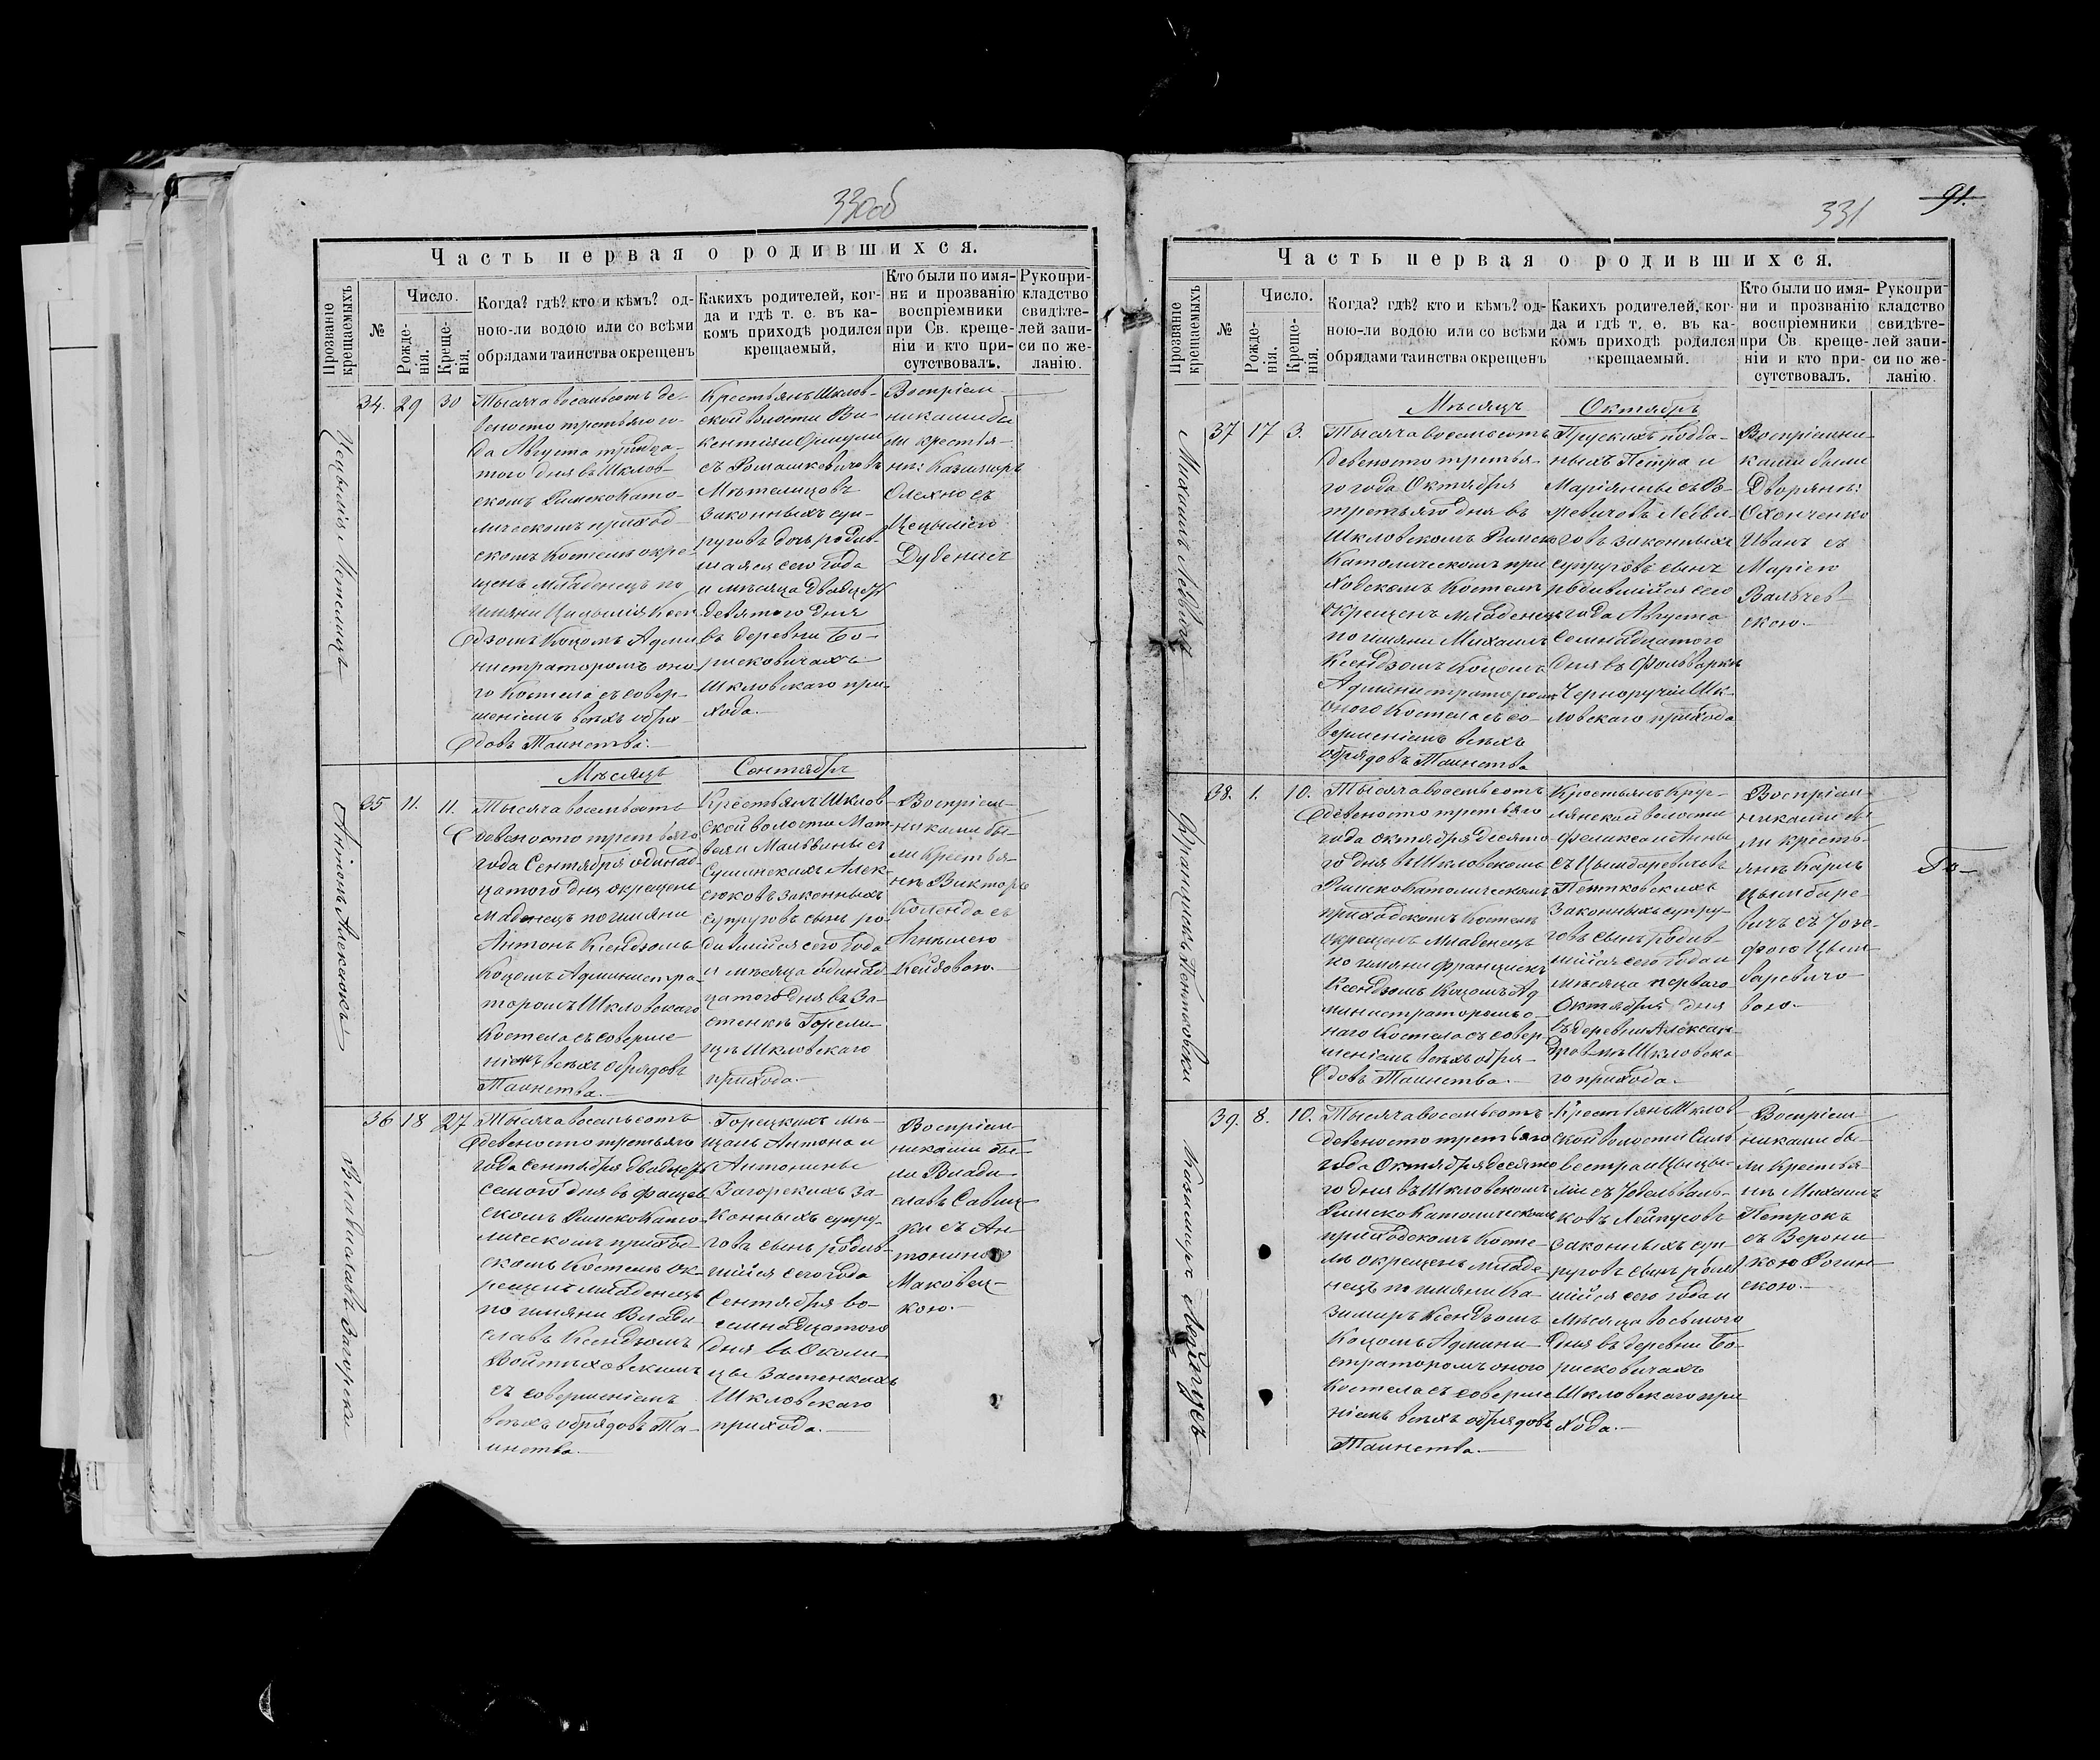 330об
Часть первая о родившихся.
Прозваніе крещаемыхъ
№
Число.
Рожде-
нія.
Креще-
нія.
Когда? гдѣ? кто и кѣмъ? од-
ною-ли водою или со всѣми
обрядами таинства окрещенъ
Какихъ родителей, ког-
да и гдѣ т. е. въ ка-
комъ приходѣ родился
крещаемый.
Кто были по имя-
ни и прозванію
воспріемники
при Св. креще-
ніи и кто при-
сутствовалъ.
Рукопри-
кладство
свидѣте-
лей запи-
си по же-
ланію.
Цецылія Метелица
34. 29 30
Тысяча восемьсотъ де-
веносто третьяго го-
да Августа тридца-
того дня въ Шклов-
скомъ Римско Като-
лическомъ приход-
скомъ Костелѣ окре-
щенъ младенецъ по
имяни Цецылія Ксен
дзомъ Коцомъ Адми
нистраторомъ оно-
го Костела съ совер-
шеніемъ всѣхъ обря
довъ Таинства.
Крестьянъ Шклов-
ской волости Ви-
кентія и
съ Ромашкевичовъ
Мѣтелицовъ
законныхъ суп-
руговъ дочь родив-
шаяся сего года
и мѣсяца двадцать
девятого дня
въ деревни Бо-
рисковичахъ
Шкловскаго при-
хода.
Воспріем-
никами бы
ли крестья-
нѣ: Казимиръ
Олехно съ
Цецыліею
Дубеничъ
Мѣсяцъ Сентябрь
Антонъ Алексюкъ
35 11. 11.
Тысяча восемьсотъ
девеносто третьяго
года Сентября одинад-
цатого дня окрещенъ
Младенецъ по имяни
Антонъ Ксендзомъ
Коцомъ Администра-
торомъ Шкловскаго
Костела съ соверше
ніемъ всѣхъ обрядовъ
Таинства.
Крестьянъ Шклов-
ской волости Мат
вея и Мальвины съ
Сушинскихъ Алек-
сюковъ законныхъ
супруговъ сынъ ро-
дившійся сего года
и мѣсяца одинад
цатого дня въ За-
стенкѣ Горели-
цѣ Шкловскаго
прихода.
Воспріем-
никами бы-
ли Крестья-
нѣ Викторъ
Коленда съ
Агнѣшею
Кейзовою.
Владиславъ Загорски
36 18 27
Тысяча восемьсотъ
девеносто третьяго
года сентября двадцать
семого дня въ Фащев
скомъ Римско Като-
лическомъ приход-
скомъ Костелѣ ок-
рещенъ младенецъ
по имяни Влади-
славъ Ксендзомъ
Войтѣховскимъ
съ совершеніемъ
всѣхъ обрядовъ Та-
инства.
Горецкихъ мѣ-
щанъ Антона и
Антонины
Загорскихъ за-
конныхъ супру-
говъ сынъ родив-
шійся сего года
Сентября во-
семнадцатого
дня въ Околи-
цы Застенкахъ
Шкловскаго
прихода.
Воспріем
никами бы-
ли Влади-
славъ Савиц-
ки съ Ан-
тониною
Маковец-
кою.
91.
331
Часть первая о родившихся.
Прозваніе крещаемыхъ
№
Число.
Рожде-
нія.
Креще-
нія.
Когда? гдѣ? кто и кѣмъ? од-
ною-ли водою или со всѣми
обрядами таинства окрещенъ
Какихъ родителей, ког-
да и гдѣ т. е. въ ка-
комъ приходѣ родился
крещаемый.
Кто были по имя-
ни и прозванію
воспріемники
при Св. креще-
ніи и кто при-
сутствовалъ.
Рукопри-
кладство
свидѣте-
лей запи-
си по же-
ланію.
Мѣсяцъ Октябрь
Михаилъ
37 17 3.
Тысяча восемьсотъ
девеносто третья-
го года Октября
третьяго дня въ
Шкловскомъ Римско
Католическомъ при
ховскомъ Костелѣ
окрещенъ младенецъ
по имяни Михаилъ
Ксендзомъ Коцомъ
Администраторомъ
оного Костела съ со-
вершеніемъ всѣхъ
обрядовъ Таинства
Прускихъ подда-
ныхъ Петра и
Маріянны съ
законныхъ
супруговъ сынъ
родившійся сего
года Августа
Семнадцатого
дня въ Фольваркѣ
Черноручьи Шк-
ловскаго прихода
Воспріемни-
ками были
Дворянъ:
Охонченко
Иванъ съ
Маріею
Вальчев-
скою.
Францишекъ Пентковски
38. 1. 10.
Тысяча восемьсотъ
девеносто третьяго
года октября десято
го дня въ Шкловскомъ
Римско Католическомъ
приходскомъ Костелѣ
окрещенъ Младенецъ
по имяни Францишекъ
Ксендзомъ Коцомъ Ад
министраторомъ о-
наго Костела съ совер
шеніемъ всѣхъ обря-
довъ Таинства.
Крестьянъ Круг-
лянской волости
Феликса и Анны
съ Цымбаревичовъ
Пентковскихъ
Законныхъ супру-
говъ сынъ родив-
шійся сего года и
мѣсяца перваго
Октября дня
въ деревни Алексан-
дровкѣ Шкловска
го прихода.
Воспріем-
никами бы
ли кресть-
янѣ Карль
Цымбаре
вичъ съ Юзе-
фою Цым-
баревичо-
вою.
Го-
Казимиръ Лейпусъ
39. 8. 10.
Тысяча восемьсотъ
девеносто третьяго
года Октября десято
го дня въ Шкловскомъ
Римско Католическомъ
приходскомъ Косте-
лѣ окрещенъ младе
нецъ по имяни Ка-
зимиръ Ксендзомъ
Коцомъ Админи-
страторомъ оного
Костела съ соверше
ніемъ всѣхъ обрядовъ
Таинства.
Крестьянъ Шклов
ской волости Силь
вестра и Цецы-
ліи съ
Лейпусовъ
законныхъ суп-
руговъ сынъ родив
шійся сего года и
мѣсяца восьмого
дня въ деревни Бо-
рисковичахъ
Шкловскаго при
хода.
Воспріем
никами бы-
ли Крестья-
нѣ Михаилъ
Петрокъ
съ Верони-
кою Рогин-
скою.